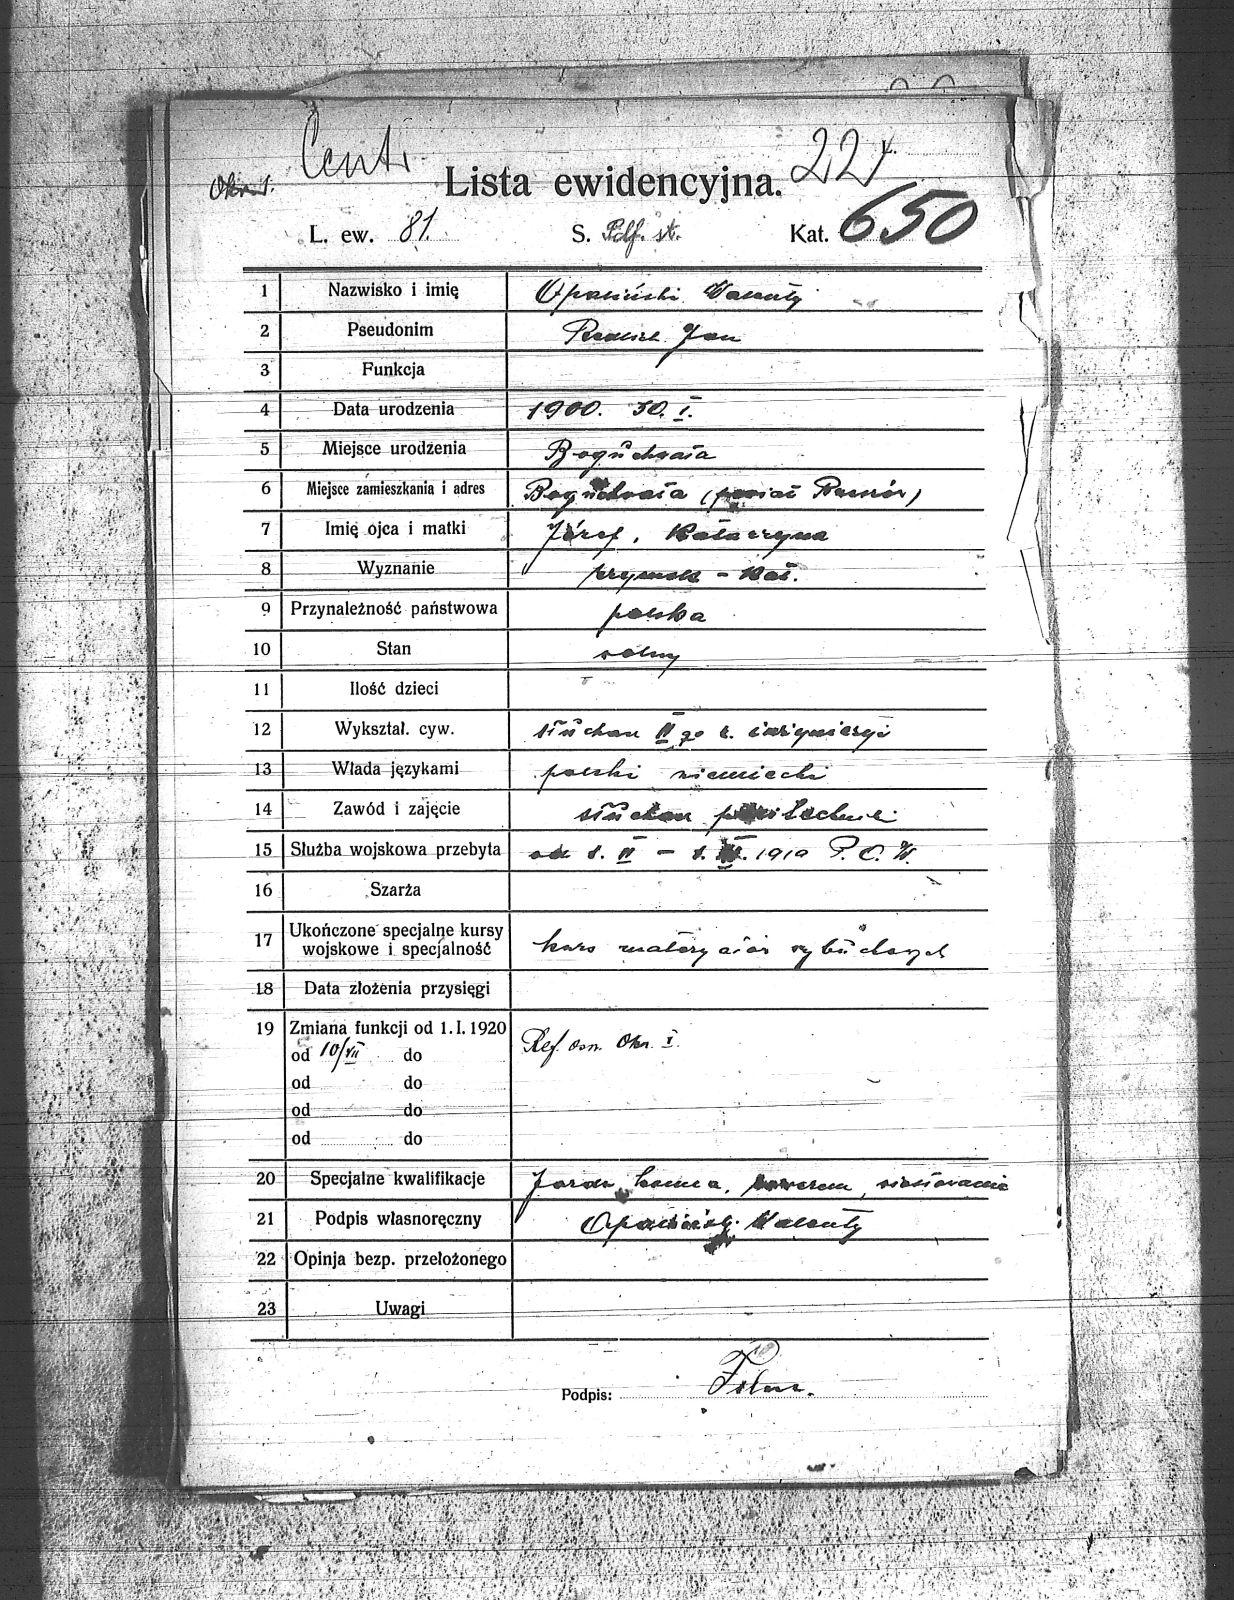 Centr. 22
Okr. I. L.
Lista ewidencyjna.
L. ew. 81. S. Pdf. st. Kat. 650
1 Nazwisko i imię Opaliński Walenty
2 Pseudonim Jan
3 Funkcja
4 Data urodzenia 1900. 30. I.
5 Miejsce urodzenia Boguchwała
6 Miejsce zamieszkania i adres Boguchwała (powiat Rzeszów)
7 Imię ojca i matki Józef, Katarzyna
8 Wyznanie rzymsk - kat.
9 Przynależność państwowa polska
10 Stan wolny
11 Ilość dzieci
12 Wykształ. cyw. słuchacz II go r. inżynieryi
13 Włada językami polski niemiecki
14 Zawód i zajęcie słuchacz politechniki
15 Służba wojskowa przebyta od 1. II - 1. 1919 P. O. W.
16 Szarża
17 Ukończone specjalne kursy
wojskowe i specjalność kurs materyałów wybuchowych
18 Data złożenia przysięgi
19 Zmiana funkcji od 1. I. 1920
od 10/VII do Ref. osw. Okr. I.
od do
od do
od do
20 Specjalne kwalifikacje Jazda konna, rowerem, wiosłowanie
21 Podpis własnoręczny Opaliński Walenty
22 Opinja bezp. przełożonego
23 Uwagi
Podpis: